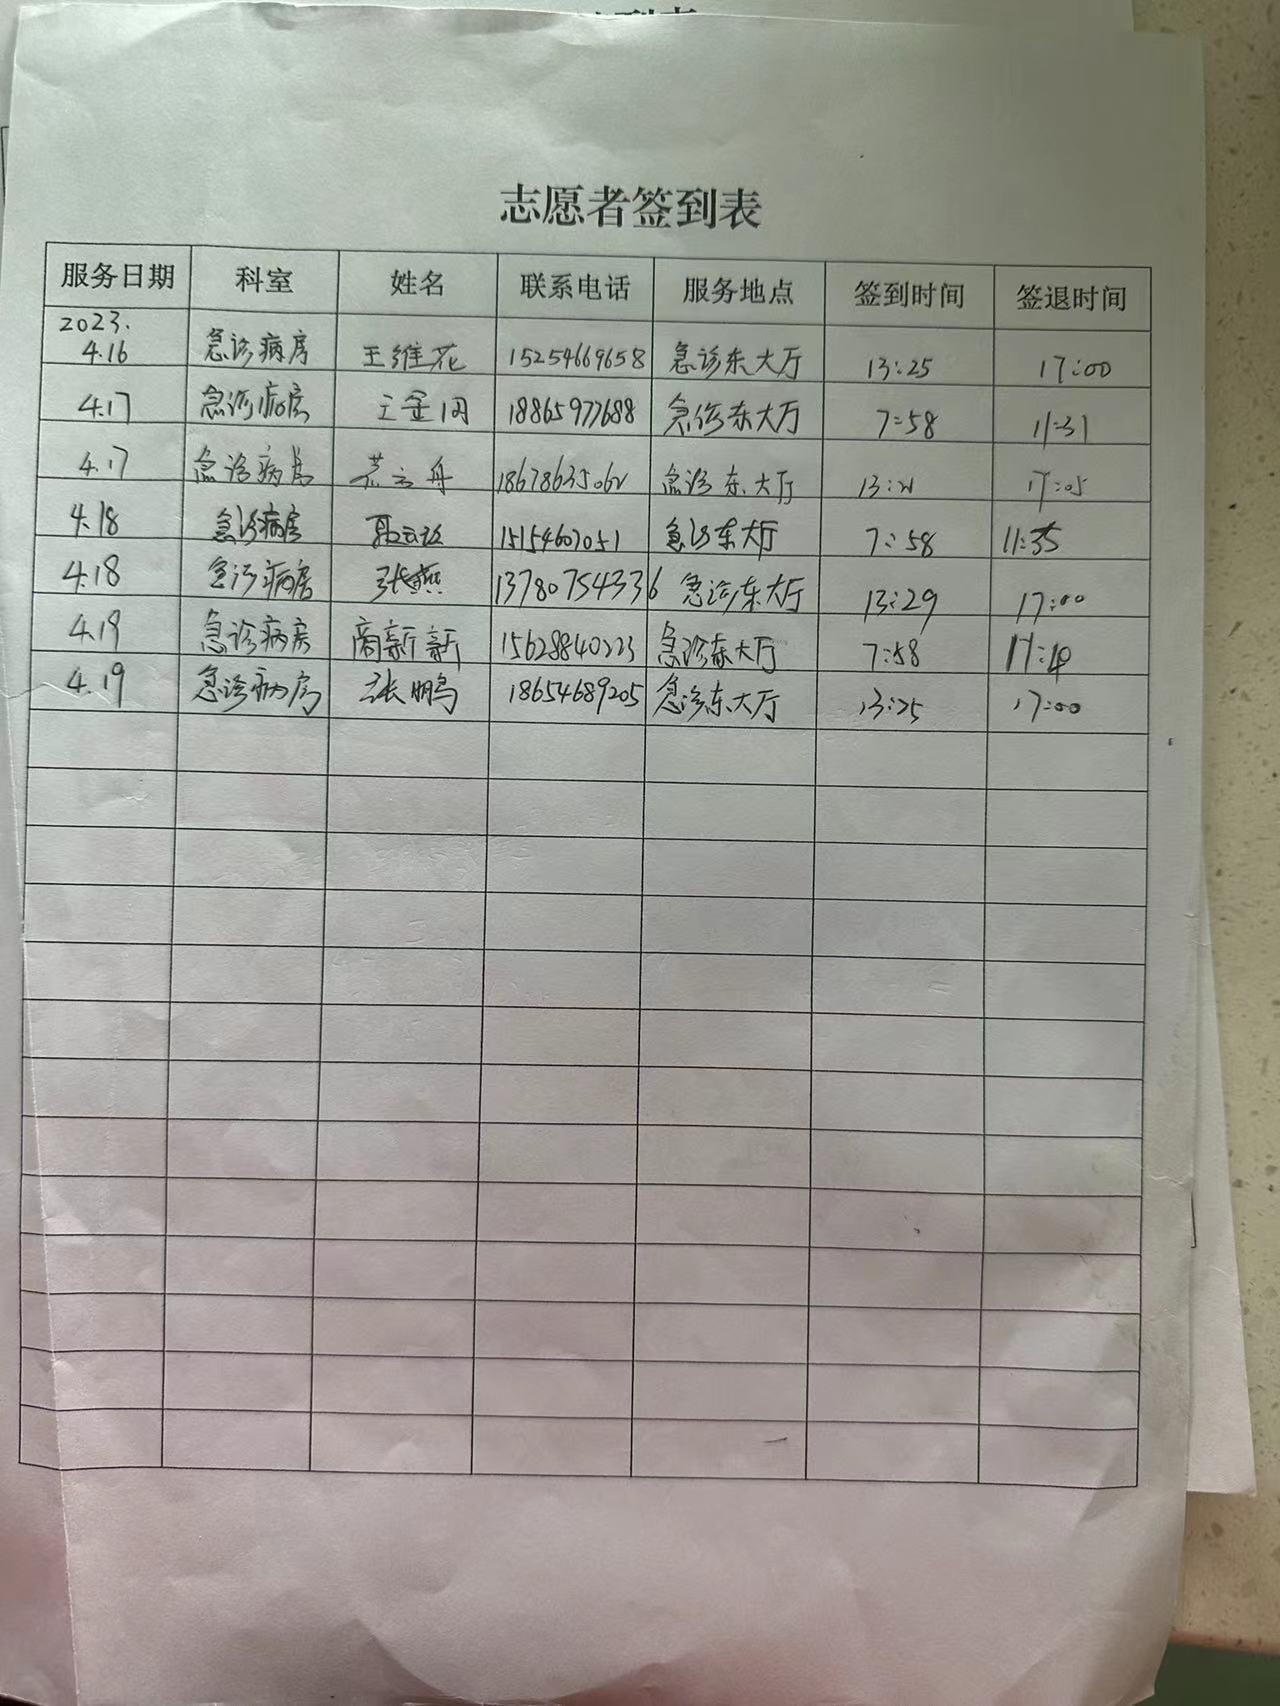 志愿者签到表
服务日期 科室 姓名 联系电话 服务地点 签到时间 签退时间
2023.
4.16 急诊病房 王维花 15254669658 急诊东大厅 13:25 17:00
4.17 急诊病房 18865977688 急诊东大厅 7:58 11:31
4.17 急诊病房 急诊东大厅 17:05
4.18 急诊病房 急诊东大厅 7:58 11:35
4.18 急诊病房 张燕 13780754336 急诊东大厅 13:29 17:00
4.19 急诊病房 商新新 15628840223 急诊东大厅 7:58
4.19 急诊病房 张鹏 18654689205 急诊东大厅 13:25 17:00